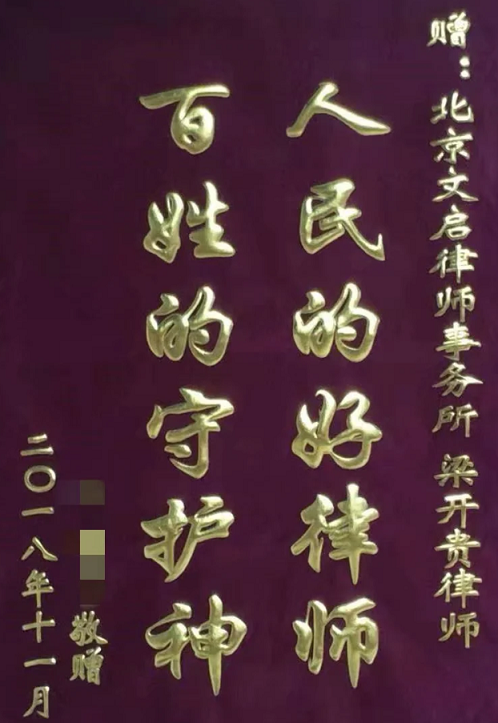 赠：北京文启律师事务所 梁开贵律师
人民的好律师
百姓的守护神
敬赠
二〇一八年十一月